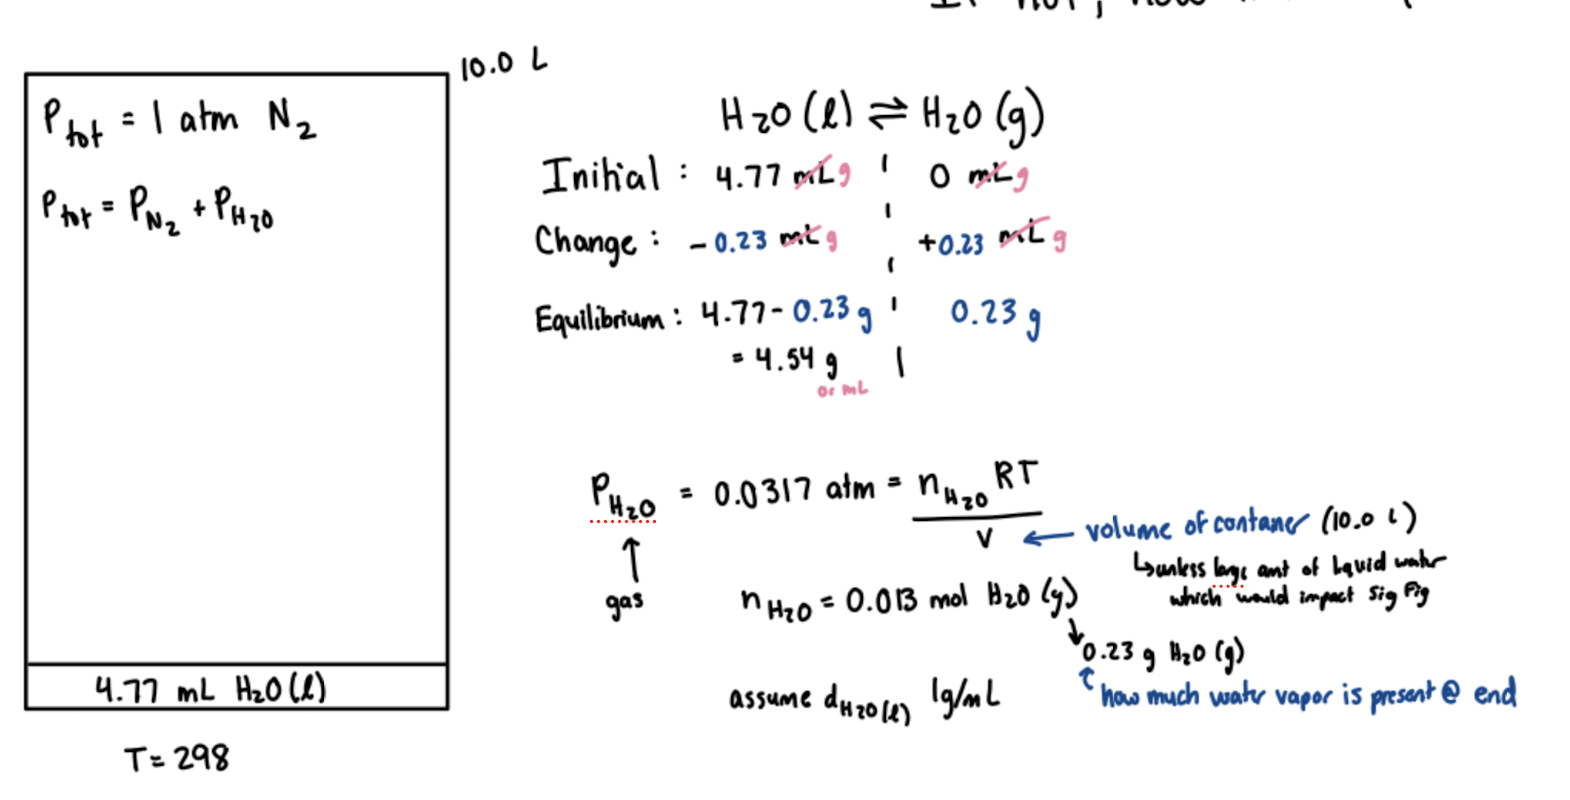 If not, how
10.0 L
P_tot = 1 atm N₂
P_tot = P_N₂ + P_H₂O
4.77 mL H₂O (l)
T = 298
H₂O (l) ⇌ H₂O (g)
Initial : 4.77 mL g 0 mL g
Change : - 0.23 mL g +0.23 mL g
Equilibrium : 4.77 - 0.23 g 0.23 g
= 4.54 g
or mL
P_H₂O = 0.0317 atm = n_H₂O RT / V
gas
← volume of contaner (10.0 L)
↳ unless large amt of liquid water
which would impact sig fig
n_H₂O = 0.013 mol H₂O (g)
0.23 g H₂O (g)
how much water vapor is present @ end
assume d_H₂O(l) 1g/mL